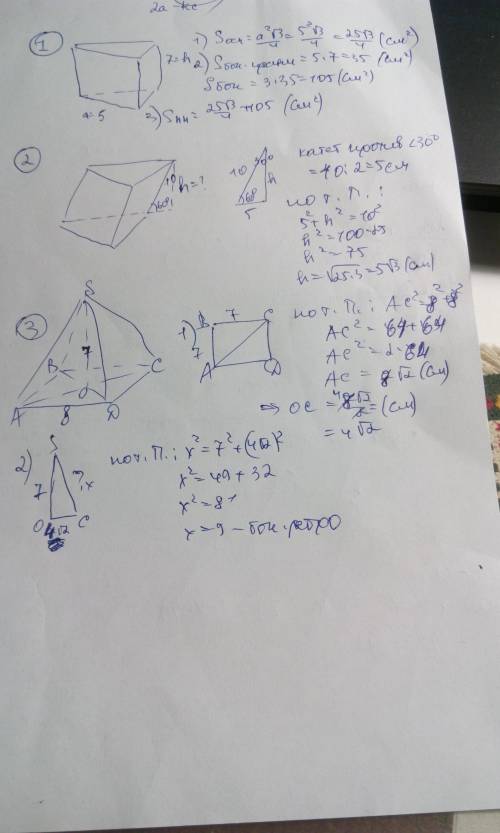 1
1) Sосн = a²√3/4 = 5²√3/4 = 25√3/4 (см²)
7=h
2) Sбок. грани = 5·7=35 (см²)
Sбок = 3·35=105 (см²)
a=5
3) Sпп = 25√3/4 + 105 (см²)
2
10
h=?
60°
10
30°
h
60°
5
катет против <30°
= 10:2=5см
по т. П.:
5²+h²=10²
h²=100-25
h²=75
h=√25·3=5√3 (см)
3
S
7
B
C
A
8
D
1)
7
C
7
A
D
по т. П.: AC²=8²+8²
AC²=64+64
AC²=2·64
AC=8√2 (см)
⇒ OC = 8√2/2 = (см)
= 4√2
2)
S
7
?x
O
4√2
C
по т. П.: x²=7²+(4√2)²
x²=49+32
x²=81
x=9 - бок. ребро